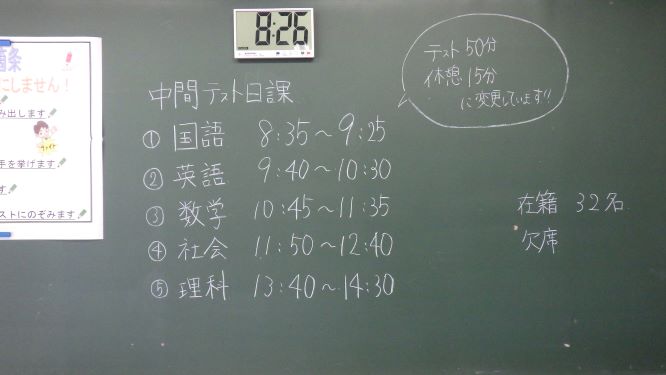 8:26
テスト50分
休憩15分
に変更しています!!
中間テスト日課
① 国語 8:35～9:25
② 英語 9:40～10:30
③ 数学 10:45～11:35
④ 社会 11:50～12:40
⑤ 理科 13:40～14:30
在籍 32名
欠席
箇条
にしません！
み出します
手を挙げます
す
ストにのぞみます